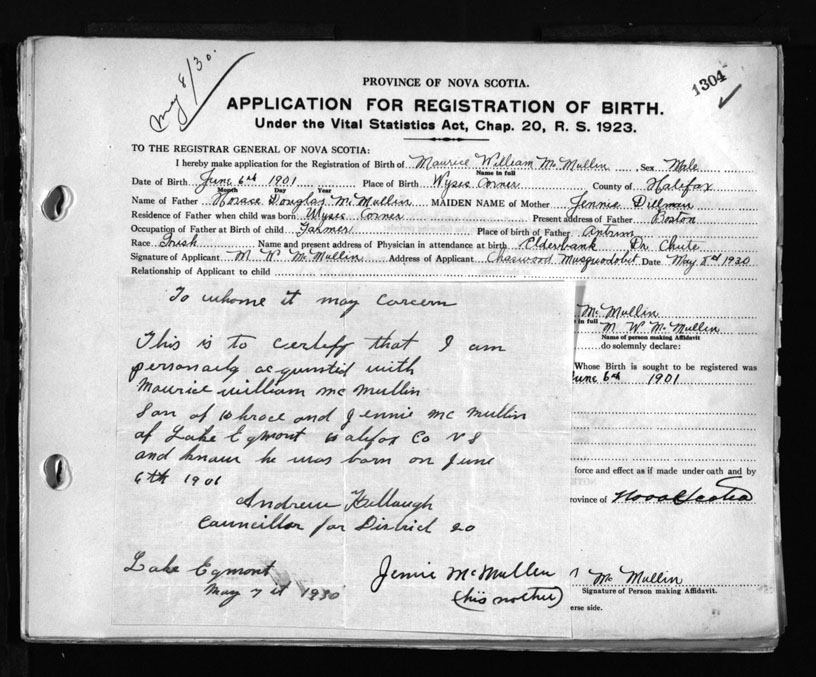 May 8/30.
1304
PROVINCE OF NOVA SCOTIA.
APPLICATION FOR REGISTRATION OF BIRTH.
Under the Vital Statistics Act, Chap. 20, R. S. 1923.
TO THE REGISTRAR GENERAL OF NOVA SCOTIA:
I hereby make application for the Registration of Birth of Maurice William McMullin Sex Male
Name in full
Date of Birth June 6th 1901 Place of Birth Wyses Corner County of Halifax
Month Day Year
Name of Father Horace Douglas McMullin MAIDEN NAME of Mother Jennie Dillman
Residence of Father when child was born Wyses Corner Present address of Father Boston
Occupation of Father at Birth of child Farmer Place of birth of Father Antrim
Race Irish Name and present address of Physician in attendance at birth Elderbank Dr Chute
Signature of Applicant M W McMullin Address of Applicant Chaswood Musquodobit Date May 8th 1930
Relationship of Applicant to child
To whome it may concern
This is to certify that I am
personaly acquinted with
Maurice william mc Mullin
Son of Horace and Jennie mc Mullin
of Lake Egmont Halifax Co N S
and know he was born on June
6th 1901
Andrew
Councillor for District 20
Lake Egmont
May 7 1930
Jennie McMullen
(his mother)
McMullin
in full
M W McMullin
Name of person making Affidavit
do solemnly declare:
Whose Birth is sought to be registered was
June 6th 1901
force and effect as if made under oath and by
rovince of Nova Scotia
McMullin
Signature of Person making Affidavit.
erse side.